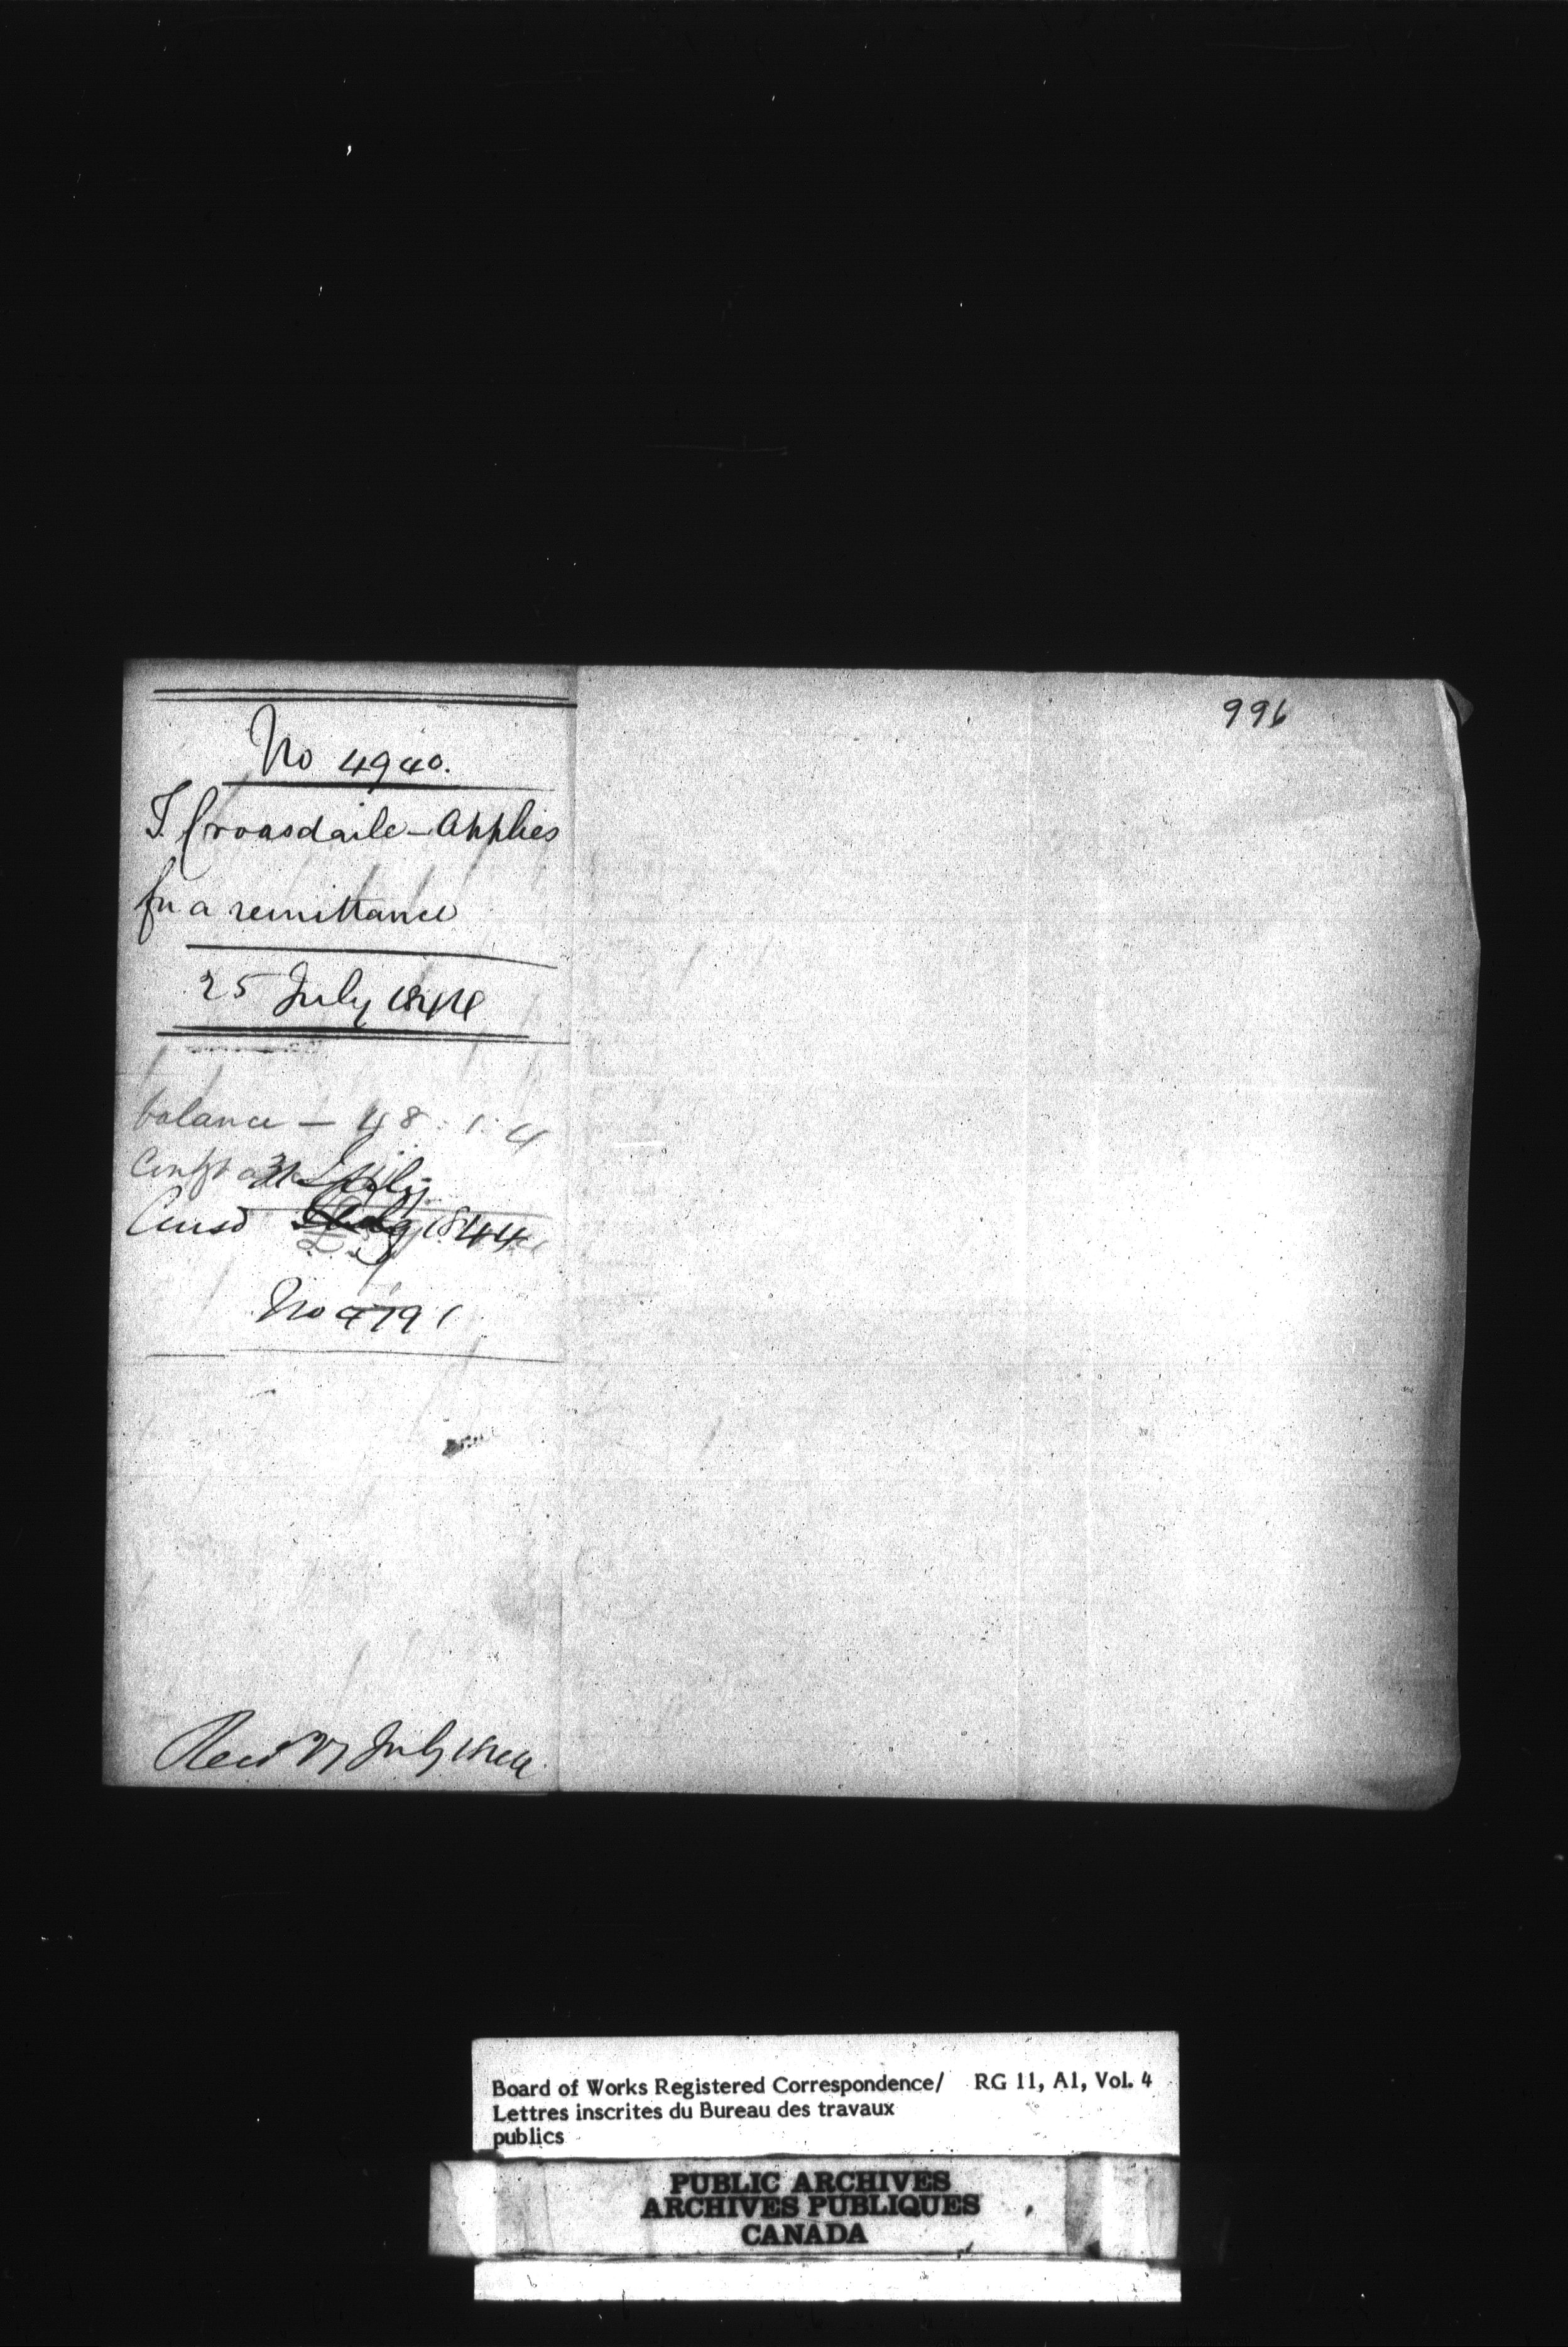 996
No 4940.
T. Croasdaile - Applies
for a remittance
25 July 1844
balance - 48 : 1 : 4
31 July
Ansd 1844
No 4791
Recd 27 July 1844
Board of Works Registered Correspondence/ RG 11, A1, Vol. 4
Lettres inscrites du Bureau des travaux
publics
PUBLIC ARCHIVES
ARCHIVES PUBLIQUES
CANADA